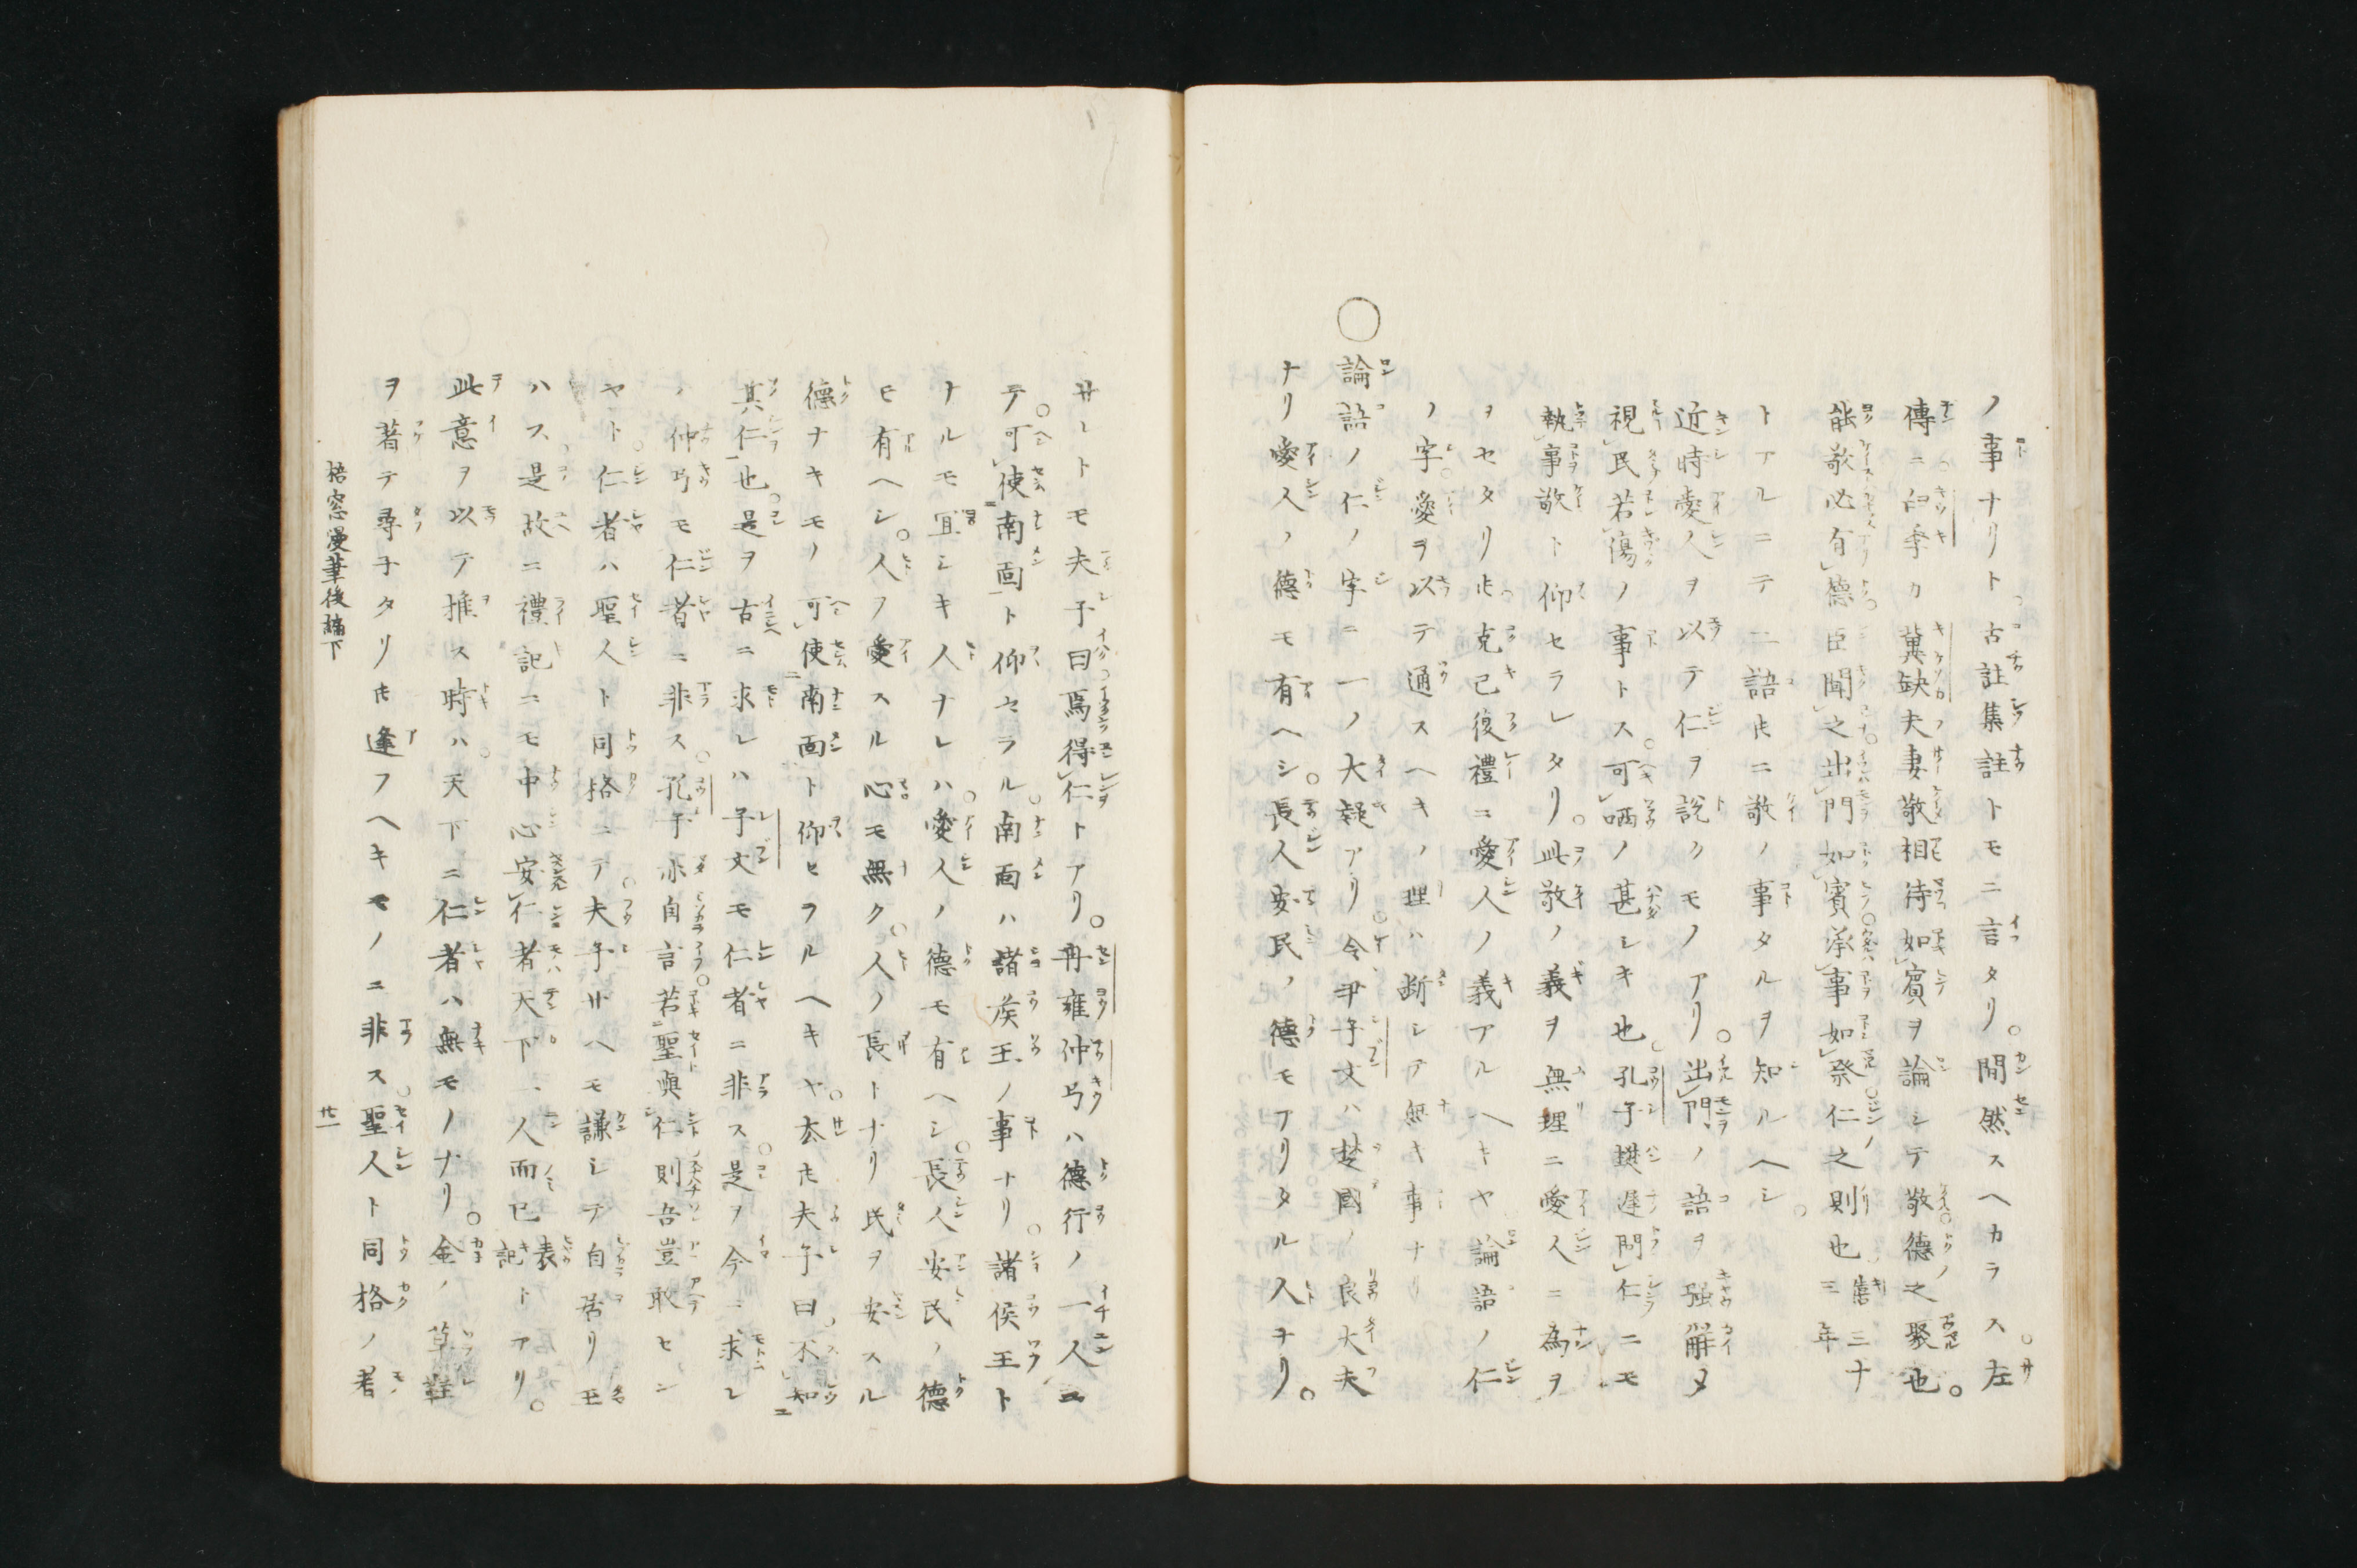 ノ事ナリト古註集註トモニ言タリ。間然スヘカラス。左
傳ニ臼季カ冀缺夫妻敬相待如賓ヲ論シテ敬德之聚也。
能敬必有德臣聞之出門如賓承事如祭仁之則也 僖三十三年
トアルニテ二語トモニ敬ノ事タルヲ知ルヘシ。
近時愛人ヲ以テ仁ヲ說クモノアリ。出門ノ語ヲ强解メ
視民若傷ノ事トス。可哂ノ甚シキ也。孔子樊遲問仁ニモ
執事敬ト仰セラレタリ。此敬ノ義ヲ無理ニ愛人ニ為ヲ
ヲセタリ𪜈。克己復禮ニ愛人ノ義アルヘキヤ論語ノ仁
ノ字。愛ヲ以テ通スヘキノ理ハ断シテ無キ事ナリ
○論語ノ仁ノ字ニ一ノ大疑アリ。令尹子文ハ楚國ノ良大夫
ナリ愛人ノ德モ有ヘシ。長人安民ノ德モアリタル人ナリ。
サレトモ夫子曰焉得仁トアリ。冉雍仲弓ハ德行ノ一人ニ
テ。可使南面ト仰セラル。南面ハ諸侯王ノ事ナリ。諸侯王ト
ナルモ宜シキ人ナレハ。愛人ノ德モ有ヘシ。長人安民ノ德
モ有ヘシ。人ヲ愛スル心モ無ク。人ノ長トナリ民ヲ安スル
德ナキモノ可使南面ト仰セラルヘキヤ。去𪜈夫子曰不知
其仁也。是ヲ古ニ求レハ子文モ仁者ニ非ス。是ヲ今ニ求レ
ハ仲弓モ仁者ニ非ス。孔子亦自言。若聖與仁則吾豈敢セン
ヤト。仁者ハ聖人ト同格ニテ。夫子サヘモ謙シテ自居リ玉
ハス。是故ニ禮記ニモ中心安仁者天下一人而已 表記 トアリ。
此意ヲ以テ推ス時ハ。天下ニ仁者ハ無モノナリ。金ノ草鞋
ヲ著テ尋子タリ𪜈逢フヘキモノニ非ス。聖人ト同格ノ者
梧窓漫筆後編下 廿一